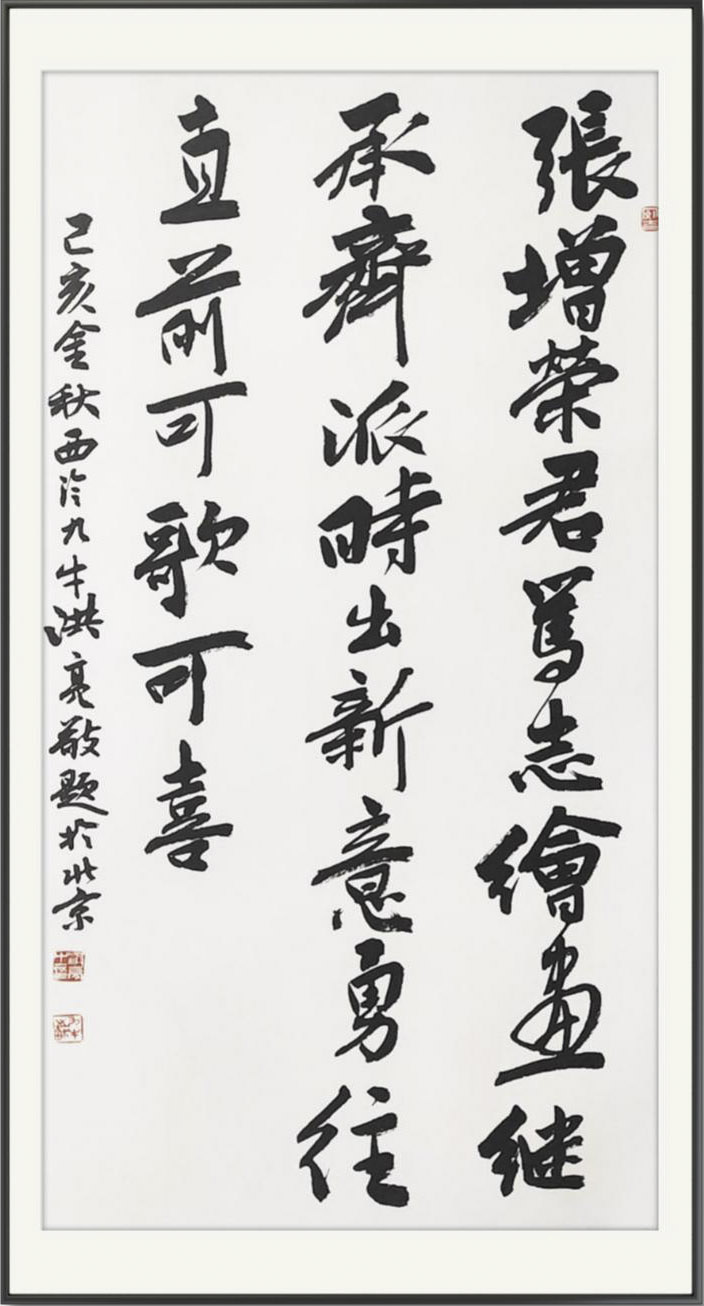 張增榮君篤志繪畫继
承齊派時出新意勇往
直前可歌可喜
己亥金秋西泠九牛洪亮敬題於北京